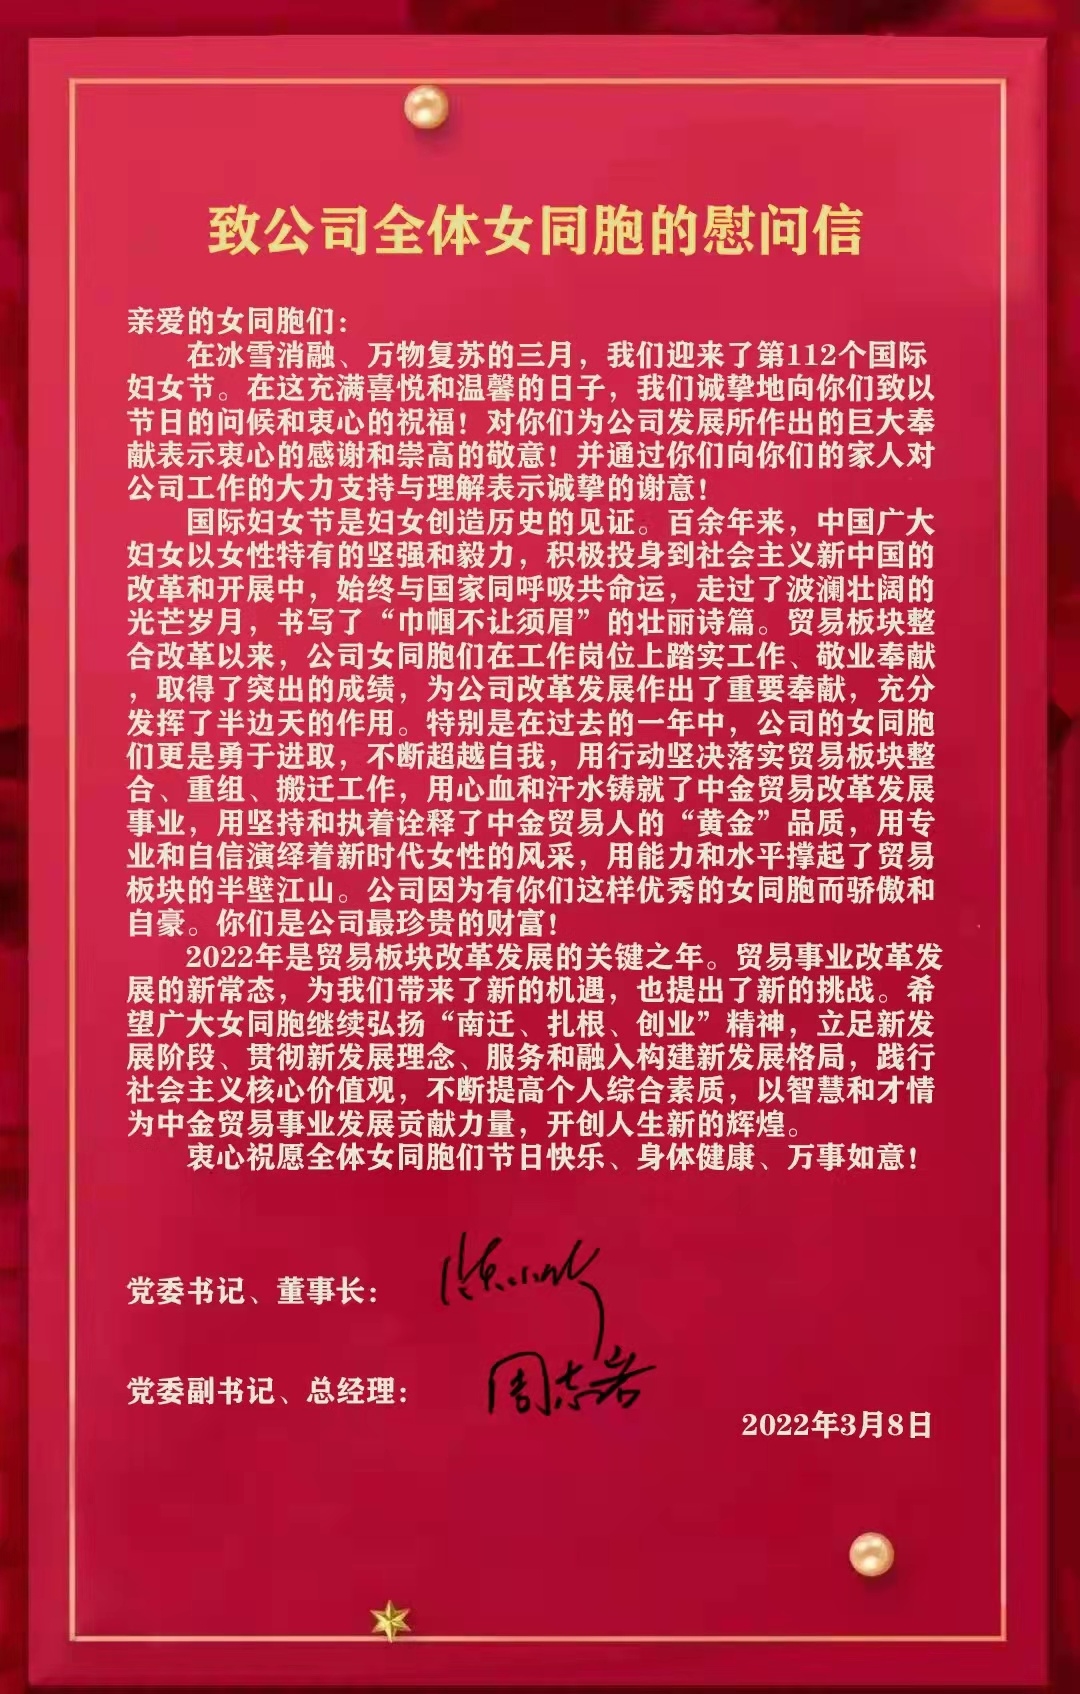 致公司全体女同胞的慰问信
亲爱的女同胞们：
在冰雪消融、万物复苏的三月，我们迎来了第112个国际
妇女节。在这充满喜悦和温馨的日子，我们诚挚地向你们致以
节日的问候和衷心的祝福！对你们为公司发展所作出的巨大奉
献表示衷心的感谢和崇高的敬意！并通过你们向你们的家人对
公司工作的大力支持与理解表示诚挚的谢意！
国际妇女节是妇女创造历史的见证。百余年来，中国广大
妇女以女性特有的坚强和毅力，积极投身到社会主义新中国的
改革和开展中，始终与国家同呼吸共命运，走过了波澜壮阔的
光芒岁月，书写了“巾帼不让须眉”的壮丽诗篇。贸易板块整
合改革以来，公司女同胞们在工作岗位上踏实工作、敬业奉献
，取得了突出的成绩，为公司改革发展作出了重要奉献，充分
发挥了半边天的作用。特别是在过去的一年中，公司的女同胞
们更是勇于进取，不断超越自我，用行动坚决落实贸易板块整
合、重组、搬迁工作，用心血和汗水铸就了中金贸易改革发展
事业，用坚持和执着诠释了中金贸易人的“黄金”品质，用专
业和自信演绎着新时代女性的风采，用能力和水平撑起了贸易
板块的半壁江山。公司因为有你们这样优秀的女同胞而骄傲和
自豪。你们是公司最珍贵的财富！
2022年是贸易板块改革发展的关键之年。贸易事业改革发
展的新常态，为我们带来了新的机遇，也提出了新的挑战。希
望广大女同胞继续弘扬“南迁、扎根、创业”精神，立足新发
展阶段、贯彻新发展理念、服务和融入构建新发展格局，践行
社会主义核心价值观，不断提高个人综合素质，以智慧和才情
为中金贸易事业发展贡献力量，开创人生新的辉煌。
衷心祝愿全体女同胞们节日快乐、身体健康、万事如意！
党委书记、董事长：
党委副书记、总经理：周志岩
2022年3月8日